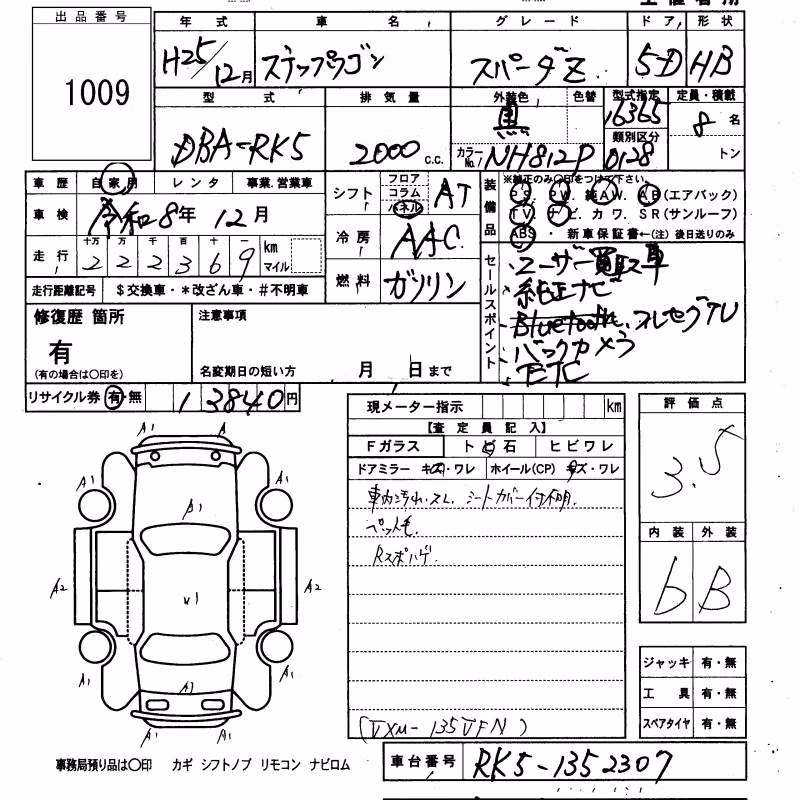 出品番号
1009
年式 車名 グレード ドア 形状
H25/12月 ステップワゴン スパーダZ 5D HB
型式 排気量 外装色 色替 型式指定 定員・積載
DBA-RK5 2000 c.c. 黒 16365 8名
カラーNo. NH812P 類別区分 0128 トン
車歴 自家用 レンタ 事業.営業車
車検 令和8年12月
走行 十万 万 千 百 十 一 km マイル
222369
走行距離記号 $交換車・*改ざん車・#不明車
シフト フロア コラム パネル AT
冷房 AAC
燃料 ガソリン
装備品 ※純正のみ〇印をつけて下さい。
P.S. P.W. 純A.W. A.B(エアバック)
T.V. ナビ. カワ. SR(サンルーフ)
ABS ・ 新車保証書←(注)後日送りのみ
セールスポイント
・ユーザー買取車
・純正ナビ
・Bluetooth.フルセグTV
・バックカメラ
・ETC
修復歴 箇所
有
(有の場合は〇印を)
注意事項
名変期日の短い方 月 日まで
リサイクル券 有・無 13840円
現メーター指示 km
【査定員記入】
Fガラス トビ石 ヒビワレ
ドアミラー キズ・ワレ ホイール(CP) キズ・ワレ
車内汚れ・スレ. シートカバー付不明.
ペット毛.
Rスポハゲ.
評価点
3.5
内装 外装
b B
A1 A1
A1 A1 A1
A2 A2
A1 A1 A1
A1 A1
ジャッキ 有・無
工具 有・無
スペアタイヤ 有・無
事務局預り品は〇印 カギ シフトノブ リモコン ナビロム
車台番号 RK5-1352307